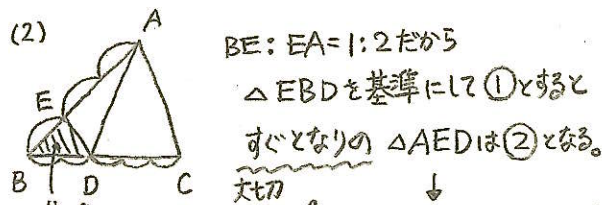 (2)
A
E
B
D
C
BE:EA=1:2だから
△EBDを基準にして①とすると
すぐとなりの △AEDは②となる。
大切
↓